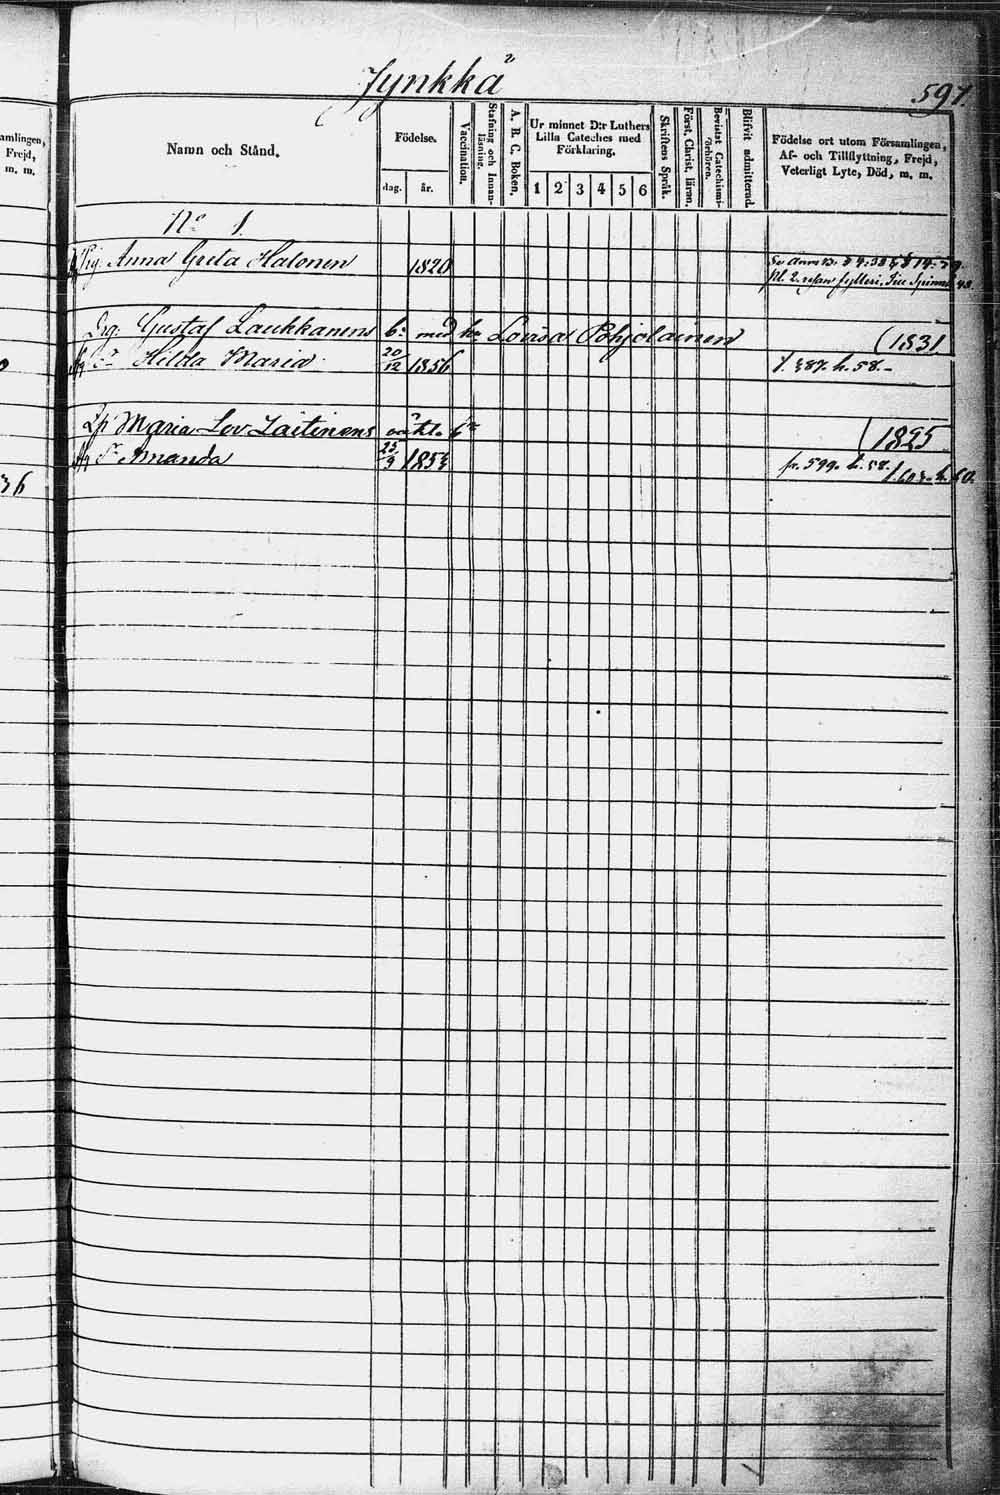 Jynkkä
597.
amlingen,
Frejd,
m. m.
Namn och Stånd.
Födelse.
dag.
år.
Vaccination.
Stafning och Innanläsning.
A. B. C. Boken.
Ur minnet D:r Luthers
Lilla Cateches med
Förklaring.
1 2 3 4 5 6
Skriftens Språk.
Först. Christ. läran.
Bevistat Catechismiförhören.
Blifvit admitterad.
Födelse ort utom Församlingen,
Af- och Tillflyttning, Frejd,
Veterligt Lyte, Död, m. m.
No 1.
Pig. Anna Greta Halonen 1820
Drg: Gustaf Laukkanens b: med h: Lovisa Pohjolainen (1831
Hilda Maria 20/12 1856 587. h. 58.
Maria Lov Laitinens oäkta b: (1825
Amanda 25/9 1853 fr. 599. h. 58.
36